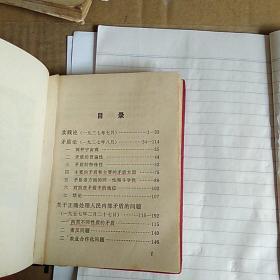 目 录
实践论(一九三七年七月) 1—33
矛盾论(一九三七年八月) 34—114
一 两种宇宙观
二 矛盾的普遍性
三 矛盾的特殊性
四 主要的矛盾和主要的矛盾方面
五 矛盾诸方面的同一性和斗争性
六 对抗在矛盾中的地位
七 结论
关于正确处理人民内部矛盾的问题
(一九五七年二月二十七日) 115—192
一 两类不同性质的矛盾 115
二 肃反问题
三 农业合作化问题 146